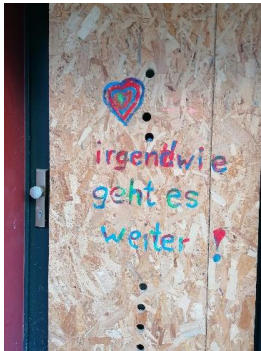 irgendwie
geht es
weiter !